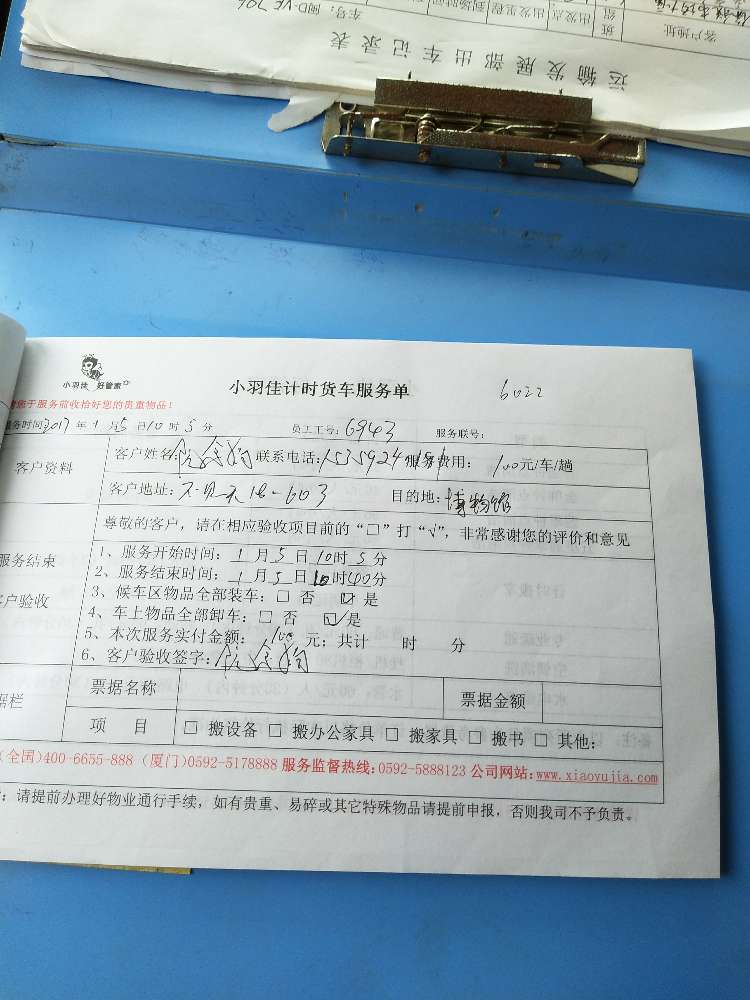 运输发展部出车记录表
客户地址
班组
出发点
出发里程
到场时间
车号：闽D-VF706
小羽佳 好管家
小羽佳计时货车服务单 6022
您于服务前收拾好您的贵重物品！
服务时间2017年1月5日10时5分 员工工号：6943 服务联号：
客户资料
客户姓名： 联系电话：1535924 服务费用：100元/车/趟
客户地址： -603 目的地：博物馆
尊敬的客户，请在相应验收项目前的“□”打“√”，非常感谢您的评价和意见
服务结束
客户验收
1、服务开始时间：1月5日10时5分
2、服务结束时间：1月5日10时40分
3、候车区物品全部装车：□ 否 ☑ 是
4、车上物品全部卸车：□ 否 ☑ 是
5、本次服务实付金额：100元；共计 时 分
6、客户验收签字：
据栏
票据名称 票据金额
项 目 □ 搬设备 □ 搬办公家具 □ 搬家具 □ 搬书 □ 其他：
(全国)400-6655-888 (厦门)0592-5178888 服务监督热线:0592-5888123 公司网站:www.xiaoyujia.com
：请提前办理好物业通行手续，如有贵重、易碎或其它特殊物品请提前申报，否则我司不予负责。